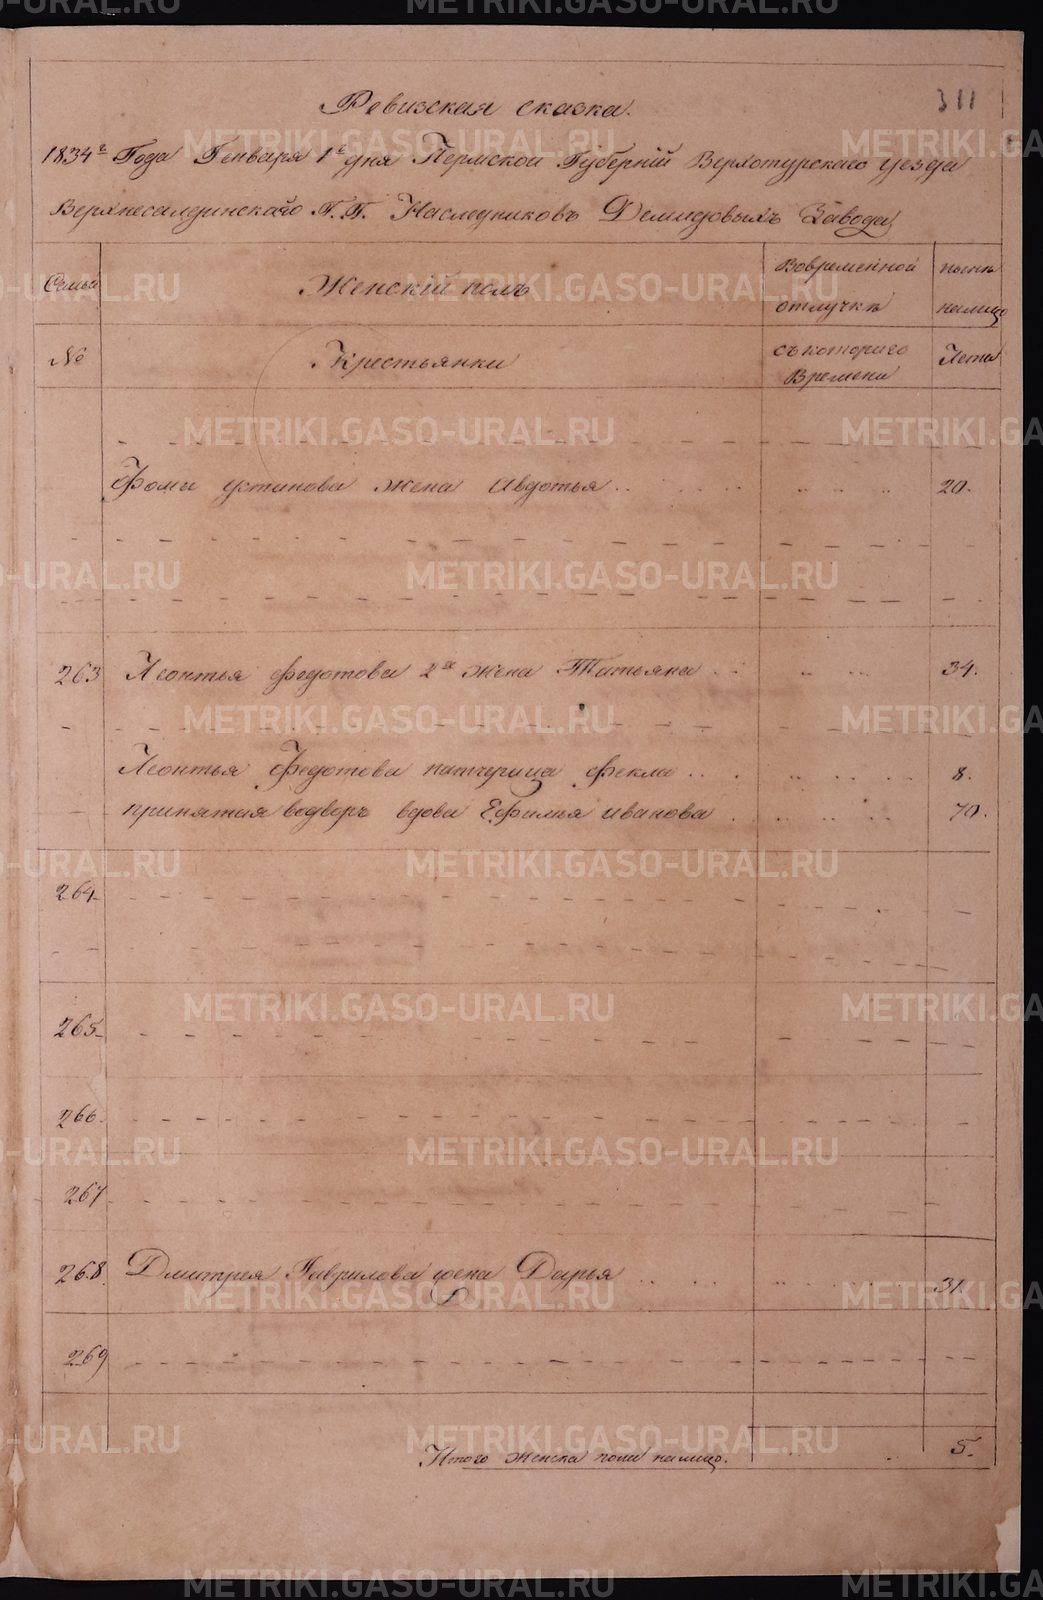 311
Ревизская сказка.
1834г Года Генваря 1е дня Пермской Губерніи Верхотурскаго уезда
Верхнесалдинскаго Г.Г. Наследниковъ Демидовыхъ Завода
Семьи
Женскій полъ
Вовременной отлучкѣ
ныне налицо
№
Крестьянки
съ котораго Времени
Лета
Фомы устинова жена Авдотья 20.
263 Леонтья федотова 2я жена Татьяна 34.
Леонтья Федотова патчерица фекла 8.
принятая водворъ вдова Ефимья иванова 70.
264
265
266.
267
268. Дмитрея Гаврилова жена Дарья 31
269
Итого женска пола налицо. 5.
METRIKI.GASO-URAL.RU